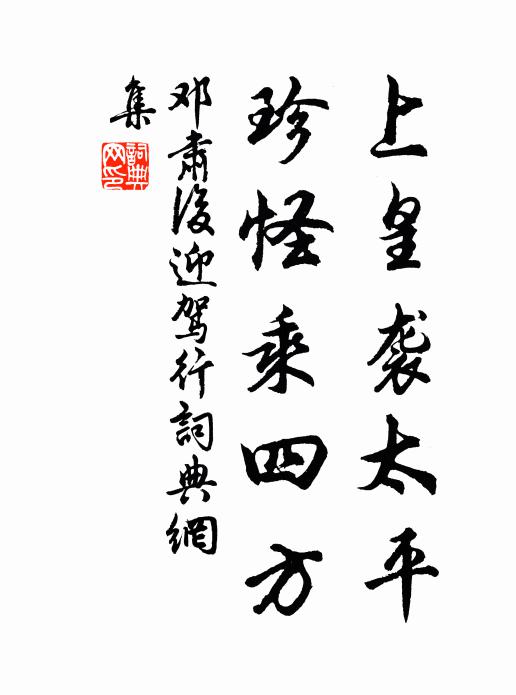 上皇袭太平
珍怪乘四方
邓肃后迎驾行詞典網
集
詞典網印